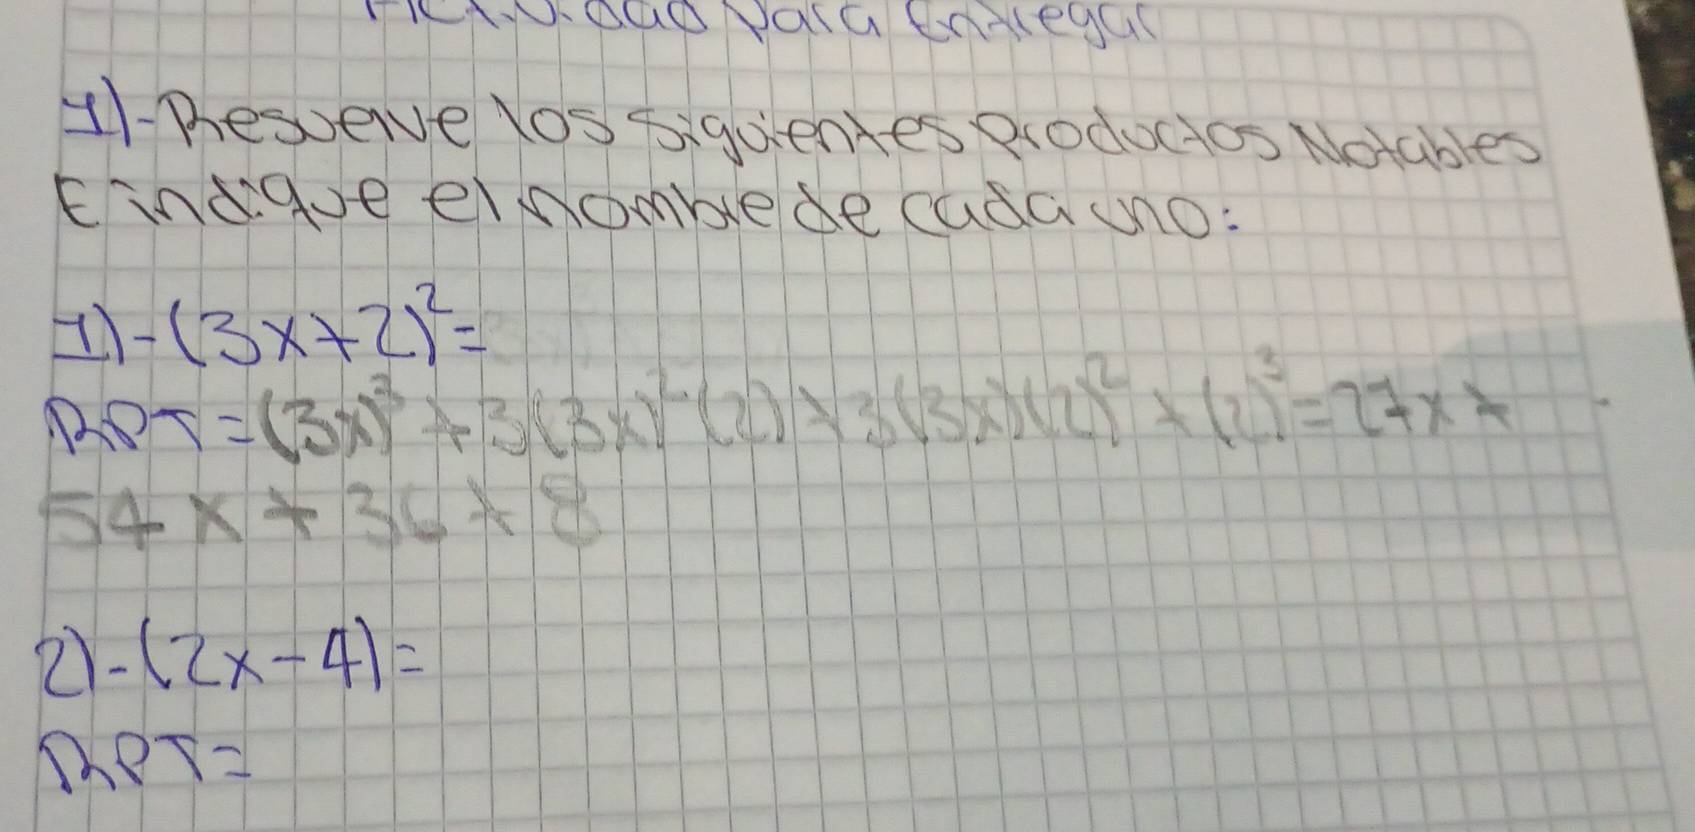 para Entregar
1)-Resuelve los siguientes productos Notables
E indique el nombre de cada uno:
1)-(3x+2)²=
RPT=(3x)³+3(3x)²(2)+3(3x)(2)²+(2)³=27x+
54x+36+8
2)-(2x-4)=
RPT=